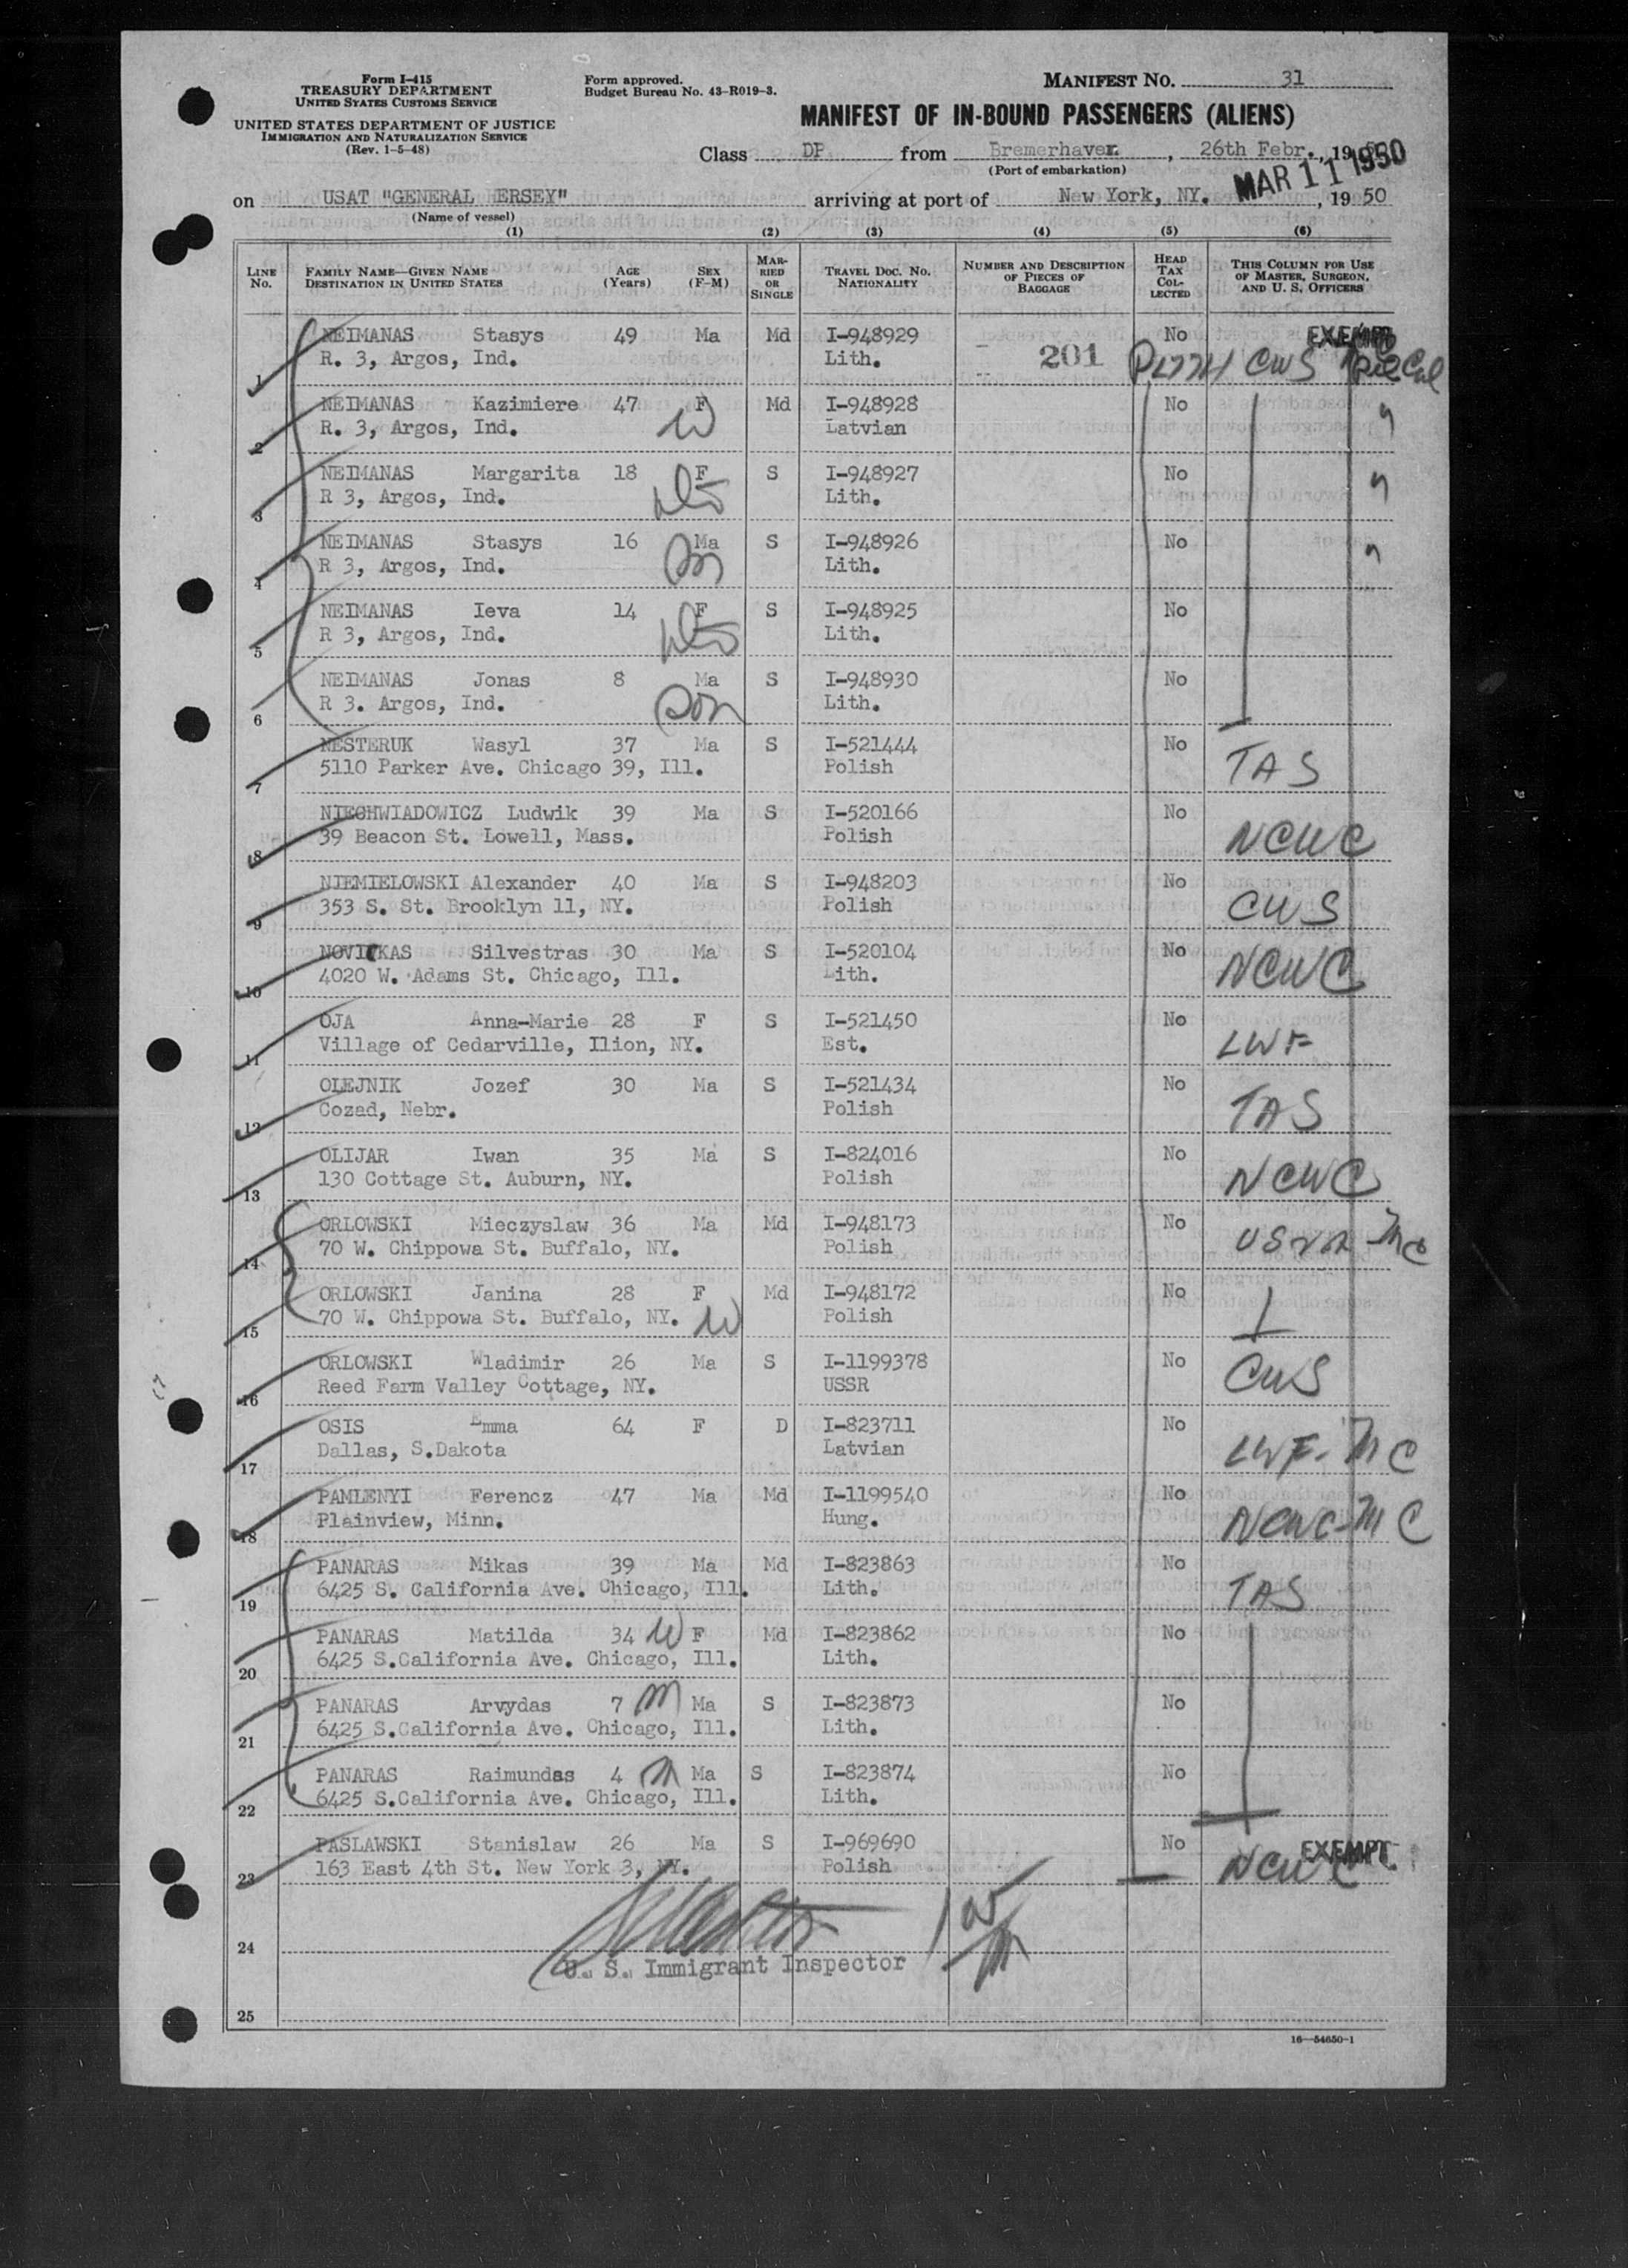 Form I-415
TREASURY DEPARTMENT
UNITED STATES CUSTOMS SERVICE
UNITED STATES DEPARTMENT OF JUSTICE
IMMIGRATION AND NATURALIZATION SERVICE
(Rev. 1-5-48)
Form approved.
Budget Bureau No. 43-R019-3.
MANIFEST NO. 31
MANIFEST OF IN-BOUND PASSENGERS (ALIENS)
Class DP from Bremerhaven, 26th Febr., 19
(Port of embarkation)
MAR 11 1950
on USAT "GENERAL HERSEY" arriving at port of New York, NY. , 19 50
(Name of vessel)
(1) (2) (3) (4) (5) (6)
LINE No. FAMILY NAME—GIVEN NAME DESTINATION IN UNITED STATES AGE (Years) SEX (F-M) MARRIED OR SINGLE TRAVEL DOC. NO. NATIONALITY NUMBER AND DESCRIPTION OF PIECES OF BAGGAGE HEAD TAX COLLECTED THIS COLUMN FOR USE OF MASTER, SURGEON, AND U. S. OFFICERS
1 NEIMANAS Stasys 49 Ma Md I-948929 No EXEMPT
R. 3, Argos, Ind. Lith. 201 CWS
2 NEIMANAS Kazimiere 47 F Md I-948928 No "
R. 3, Argos, Ind. W Latvian
3 NEIMANAS Margarita 18 F S I-948927 No "
R 3, Argos, Ind. Lith.
4 NEIMANAS Stasys 16 Ma S I-948926 No "
R 3, Argos, Ind. Son Lith.
5 NEIMANAS Ieva 14 F S I-948925 No
R 3, Argos, Ind. Lith.
6 NEIMANAS Jonas 8 Ma S I-948930 No
R 3. Argos, Ind. Son Lith.
7 NESTERUK Wasyl 37 Ma S I-521444 No TAS
5110 Parker Ave. Chicago 39, Ill. Polish
8 NIECHWIADOWICZ Ludwik 39 Ma S I-520166 No NCWC
39 Beacon St. Lowell, Mass. Polish
9 NIEMIELOWSKI Alexander 40 Ma S I-948203 No CWS
353 S. St. Brooklyn 11, NY. Polish
10 NOVICKAS Silvestras 30 Ma S I-520104 No NCWC
4020 W. Adams St. Chicago, Ill. Lith.
11 OJA Anna-Marie 28 F S I-521450 No LWF
Village of Cedarville, Ilion, NY. Est.
12 OLEJNIK Jozef 30 Ma S I-521434 No TAS
Cozad, Nebr. Polish
13 OLIJAR Iwan 35 Ma S I-824016 No NCWC
130 Cottage St. Auburn, NY. Polish
14 ORLOWSKI Mieczyslaw 36 Ma Md I-948173 No MC
70 W. Chippowa St. Buffalo, NY. Polish
15 ORLOWSKI Janina 28 F Md I-948172 No
70 W. Chippowa St. Buffalo, NY. W Polish
16 ORLOWSKI Wladimir 26 Ma S I-1199378 No CWS
Reed Farm Valley Cottage, NY. USSR
17 OSIS Emma 64 F D I-823711 No LWF-MC
Dallas, S.Dakota Latvian
18 PAMLENYI Ferencz 47 Ma Md I-1199540 No NCWC-MC
Plainview, Minn. Hung.
19 PANARAS Mikas 39 Ma Md I-823863 No TAS
6425 S. California Ave. Chicago, Ill. Lith.
20 PANARAS Matilda 34 W F Md I-823862 No
6425 S.California Ave. Chicago, Ill. Lith.
21 PANARAS Arvydas 7 m Ma S I-823873 No
6425 S.California Ave. Chicago, Ill. Lith.
22 PANARAS Raimundas 4 m Ma S I-823874 No
6425 S.California Ave. Chicago, Ill. Lith.
23 PASLAWSKI Stanislaw 26 Ma S I-969690 No EXEMPT
163 East 4th St. New York 3, NY. Polish NCWC
24
U. S. Immigrant Inspector
25
16—54650-1